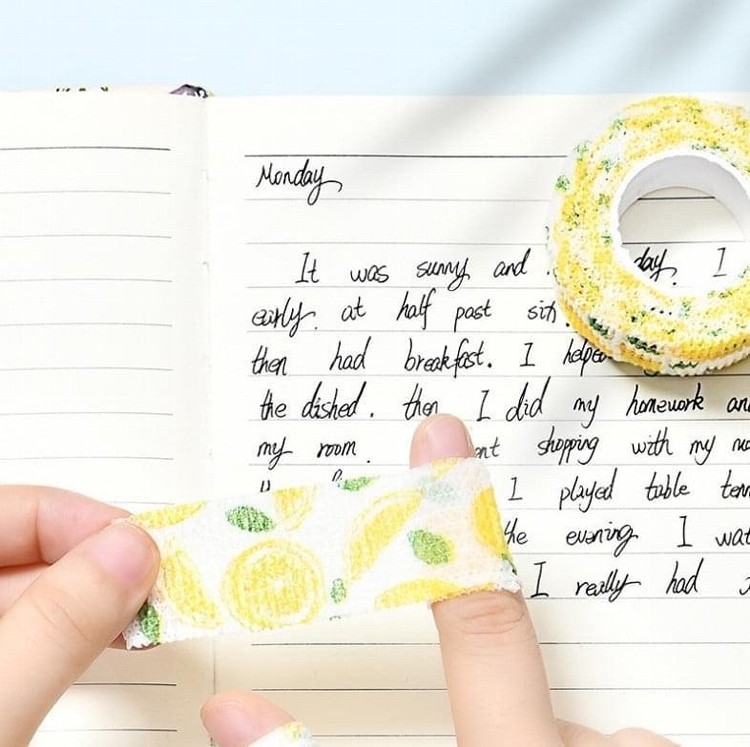 Monday
It was sunny and day. I
early. at half past six.
then had breakfast. I helped
the dished. then I did my homework and
my room. shopping with my
I played table
the evening I
I really had